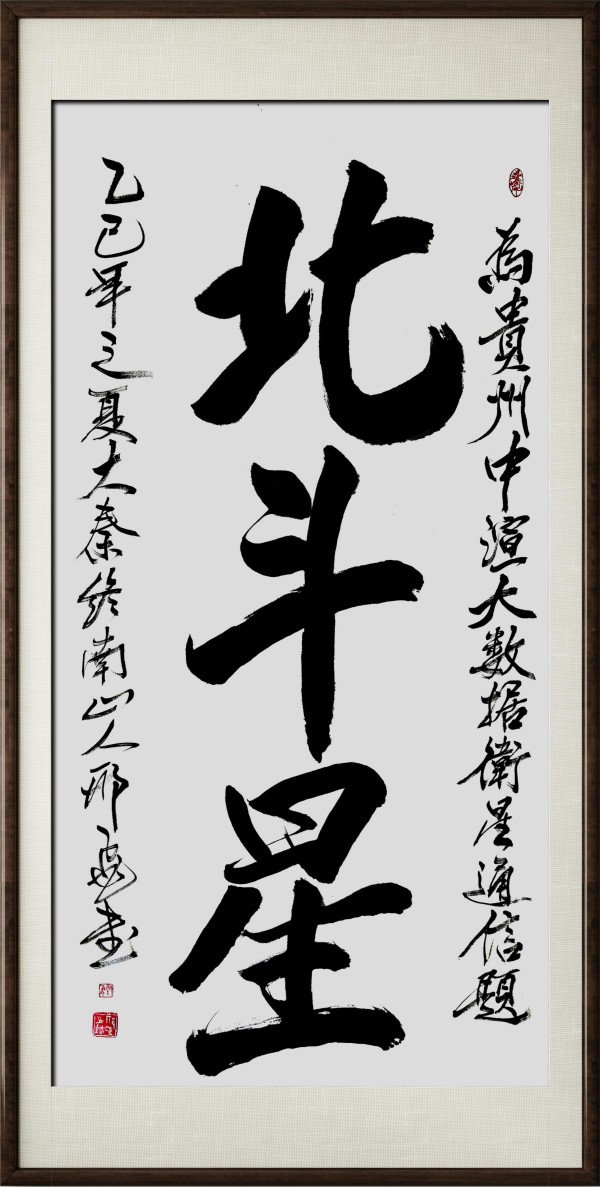 為貴州中渲大数据衛星通信題
北斗星
乙巳年之夏大秦终南山人邢书